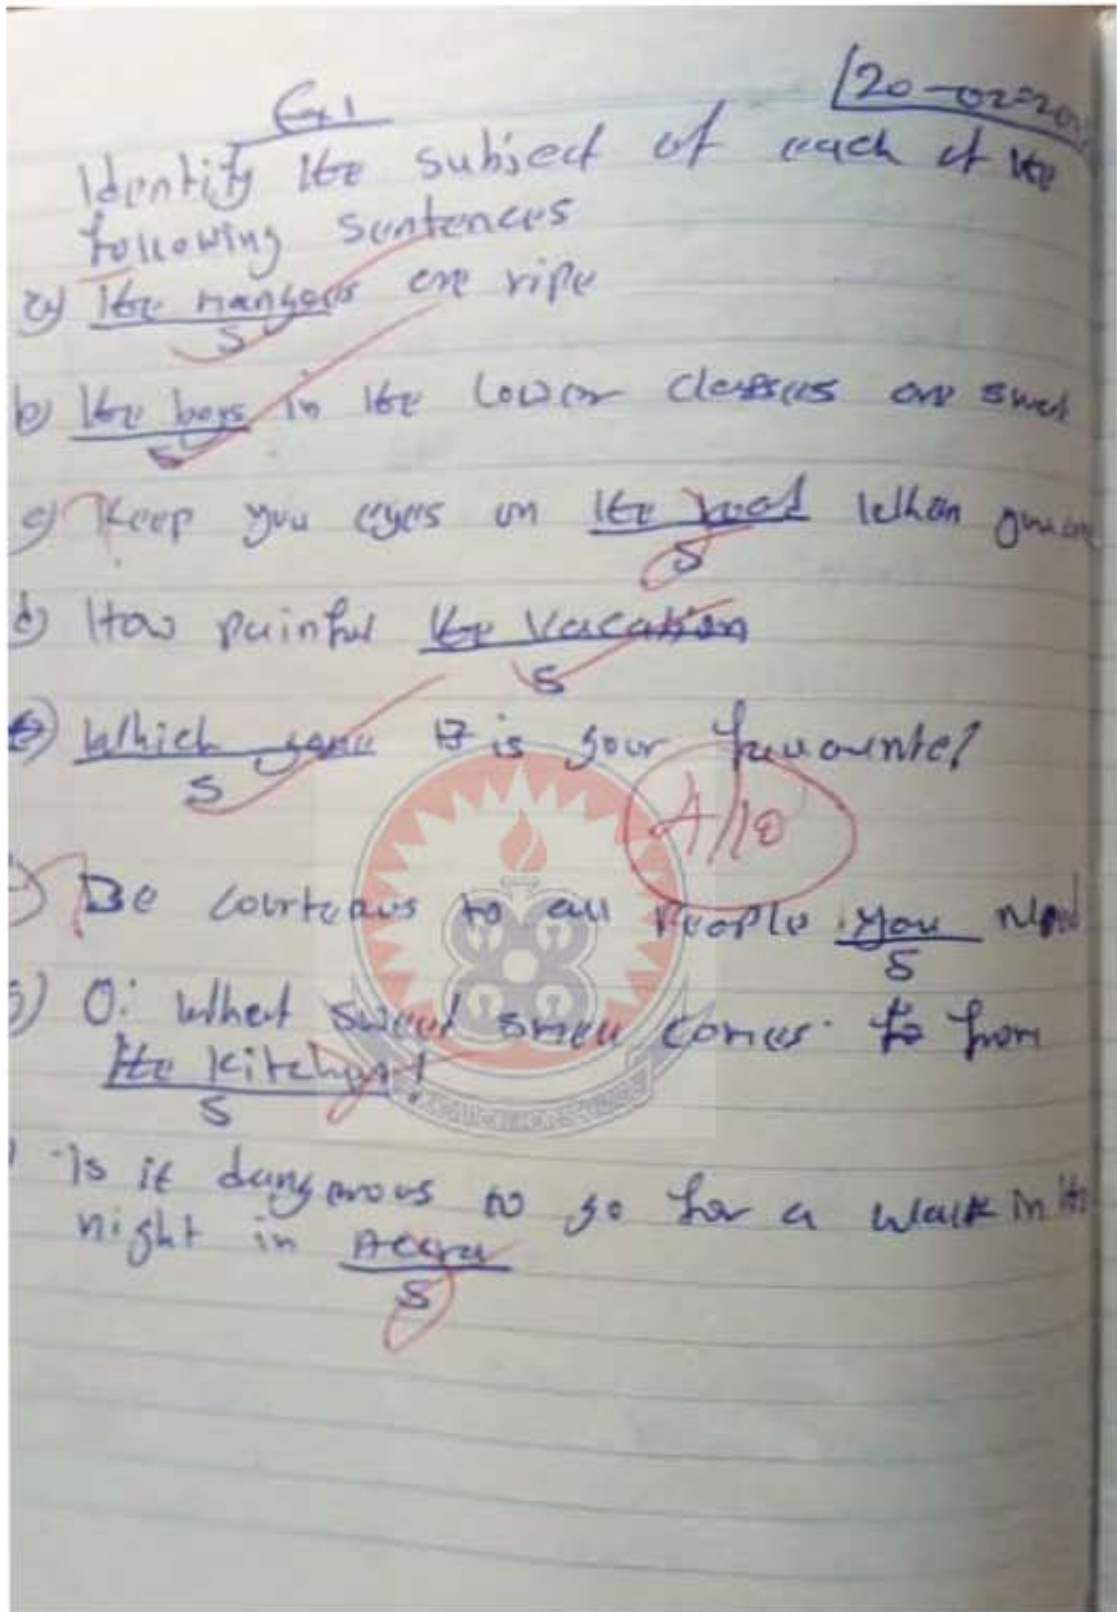 Ex 1
20-02-20
Identify the subject of each of the
following sentences
a) the mangoes are ripe
S
b) the boys in the Lower classes are
S
c) Keep you eyes on the road when
S
d) How painful the vacation
S
e) Which game is your favourite?
S
4/10
Be courteous to all People you
S
g) O: What sweet smell comes from
the kitchen!
S
Is it dangerous to go for a walk in the
night in Accra
S